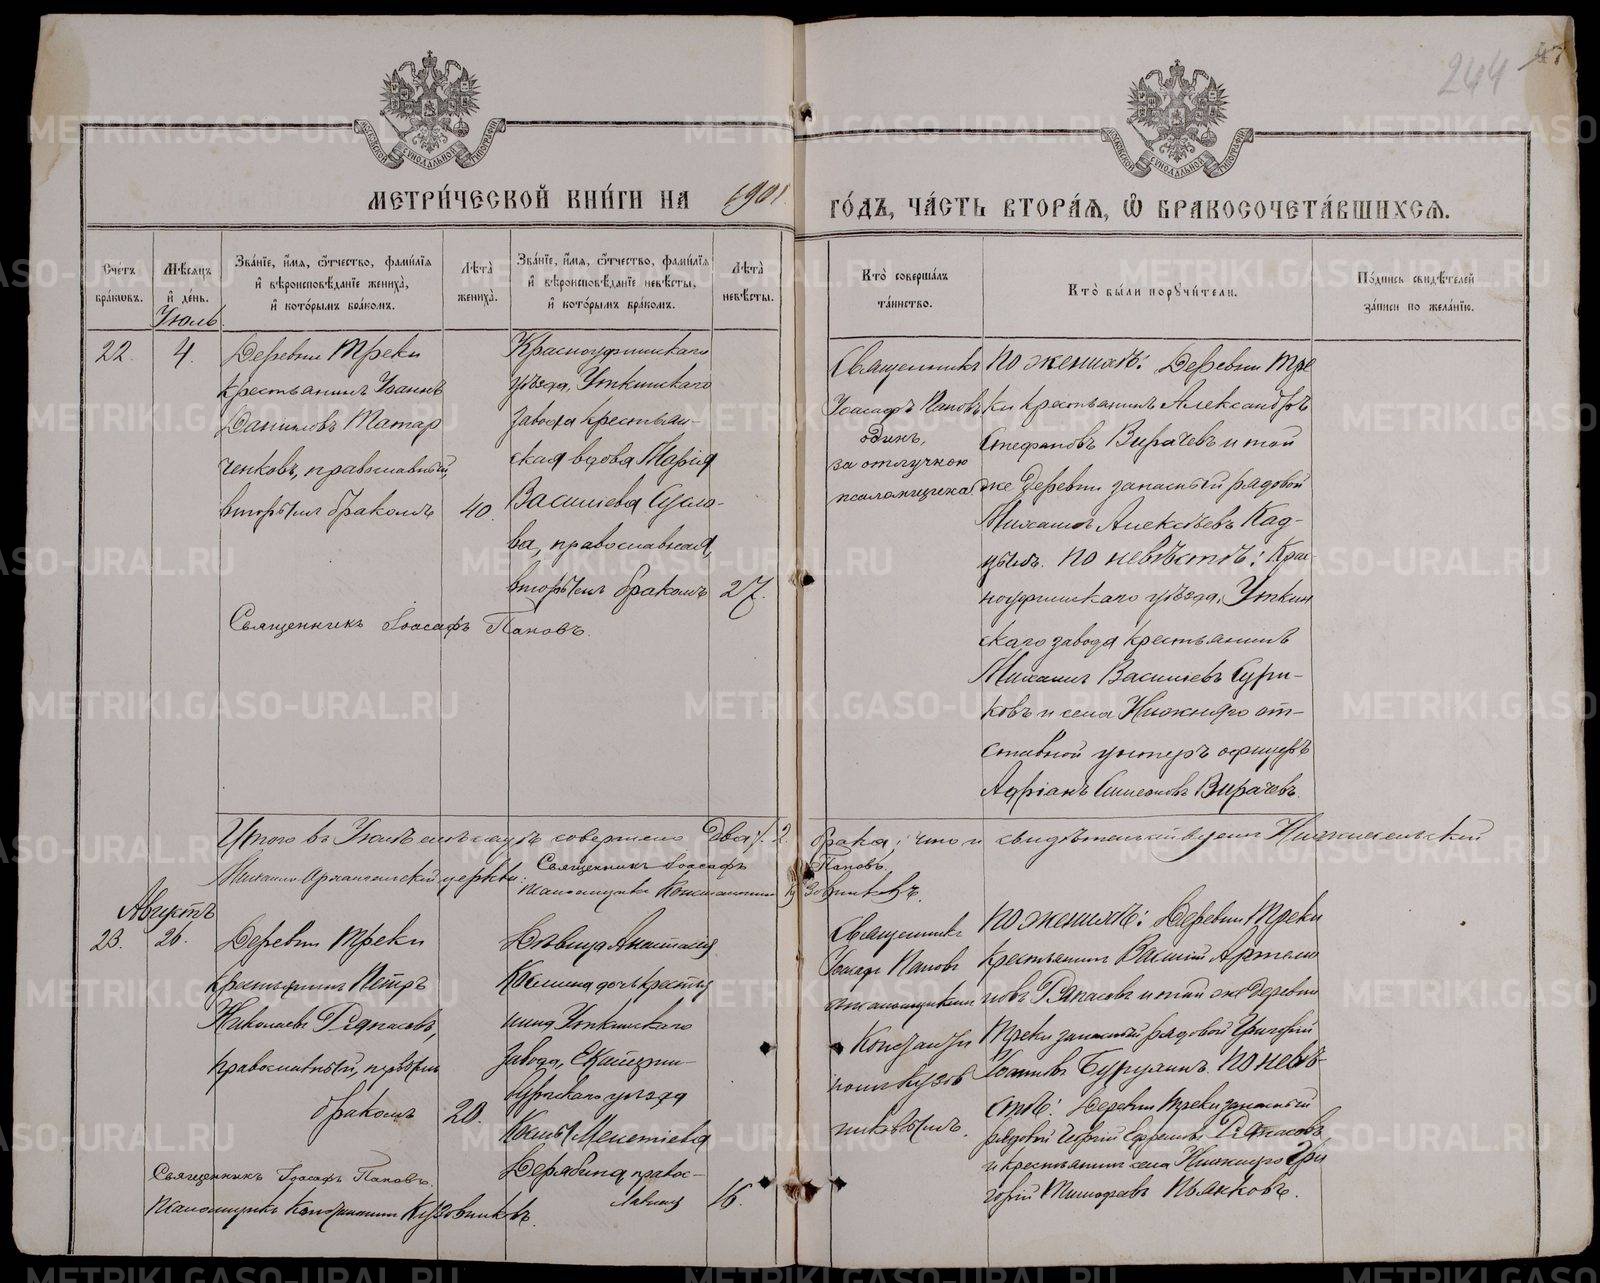 244
47
МЕТРИ́ЧЕСКОЙ КНИ́ГИ НА 1901 ГО́ДЪ, ЧА́СТЬ ВТОРА́Я, Ѽ БРАКОСОЧЕТА́ВШИХСѦ.
Сче́тъ бра́кωвъ.
Мѣ́сѧцъ и҆ де́нь.
Зва́нїе, и҆́мѧ, ѻ҆́тчество, фами́лїѧ и҆ вѣроисповѣ́данїе жениха̀, и҆ кото́рымъ бра́комъ.
Лѣ́та̀ жениха̀.
Зва́нїе, и҆́мѧ, ѻ҆́тчество, фами́лїѧ и҆ вѣроисповѣ́данїе невѣ́сты, и҆ кото́рымъ бра́комъ.
Лѣ́та̀ невѣ́сты.
Кто̀ соверша́лъ та́инство.
Кто̀ бы́ли порꙋчи́тели.
По́дпись свидѣ́телей за́писи по жела́нїю.
Іюль
22
4.
Деревни Треки
крестьянинъ Іоаннъ
Данииловъ Татар
ченковъ, православный,
вторымъ бракомъ
40.
Красноуфимскаго
уѣзда, Уткинскаго
завода крестьян-
ская вдова Марія
Василіева Сусло-
ва, православная,
вторымъ бракомъ
27.
Священникъ Іоасафъ Поповъ.
Священникъ
Іоасафъ Поповъ
одинъ,
за отлучкою
псаломщика.
по женихѣ: Деревни Тре
ки крестьянинъ Александръ
Стефановъ Вирачевъ и той
же деревни запасный рядовой
Михаилъ Алексѣевъ Кад-
цынъ. по невѣстѣ: Крас-
ноуфимскаго уѣзда, Уткин
скаго завода крестьянинъ
Михаилъ Василіевъ Сури-
ковъ и села Нижняго от-
ставной унтеръ офицеръ
Адріанъ Симеоновъ Вирачевъ.
Итого въ Іюлѣ мѣсяцѣ совершено два /. 2 брака; что и свидѣтельствуетъ Нижнесельской
Михаило Архангельской церкви: Священникъ Іоасафъ Поповъ.
Псаломщикъ Константинъ Кузовниковъ.
Августъ
23.
26.
Деревни Треки
крестьянинъ Петръ
Николаевъ Ряпасовъ,
православный, первымъ
бракомъ
20.
Дѣвица Анастасія
Космина дочь крестья
нина Уткинскаго
завода, Екатерин-
бургскаго уѣзда
Космы Мелетіева
Дерябина, правос-
лавная
16.
Священникъ Іоасафъ Поповъ.
Псаломщикъ Константинъ Кузовниковъ.
Священникъ
Іоасафъ Поповъ
съ псаломщикомъ
Константи
номъ Кузов
никовымъ.
по женихѣ: Деревни Треки
крестьянинъ Василій Артемо
новъ Ряпасовъ и той же деревни
Треки запасный рядовой Григорій
Іоанновъ Бурухинъ. по невѣ-
стѣ: Деревни Треки запасный
рядовой Георгій Ефремовъ Ряпасовъ
и крестьянинъ села Нижняго Гри
горій Тимофеевъ Пьянковъ.